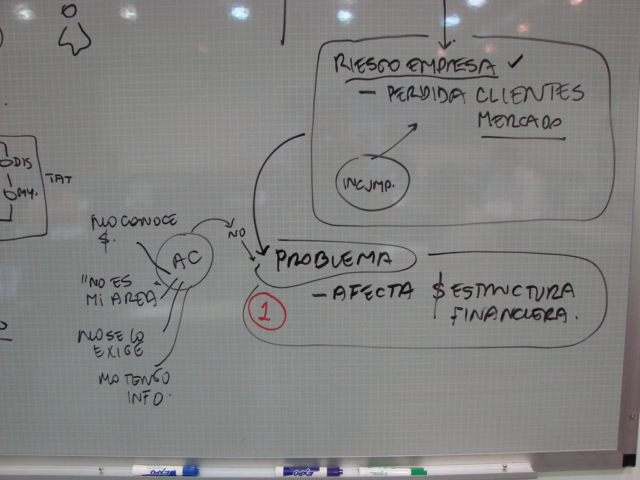 RIESGO EMPRESA ✓
- PERDIDA CLIENTES
MERCADO
INCUMP.
DIS
MY.
TAT
NO CONOCE
$.
AC
NO
"NO ES
MI AREA"
NO SE LO
EXIGE
NO TENGO
INFO.
PROBLEMA
- AFECTA $ ESTRUCTURA
FINANCIERA.
1
EXPO
EXPO
EXPO